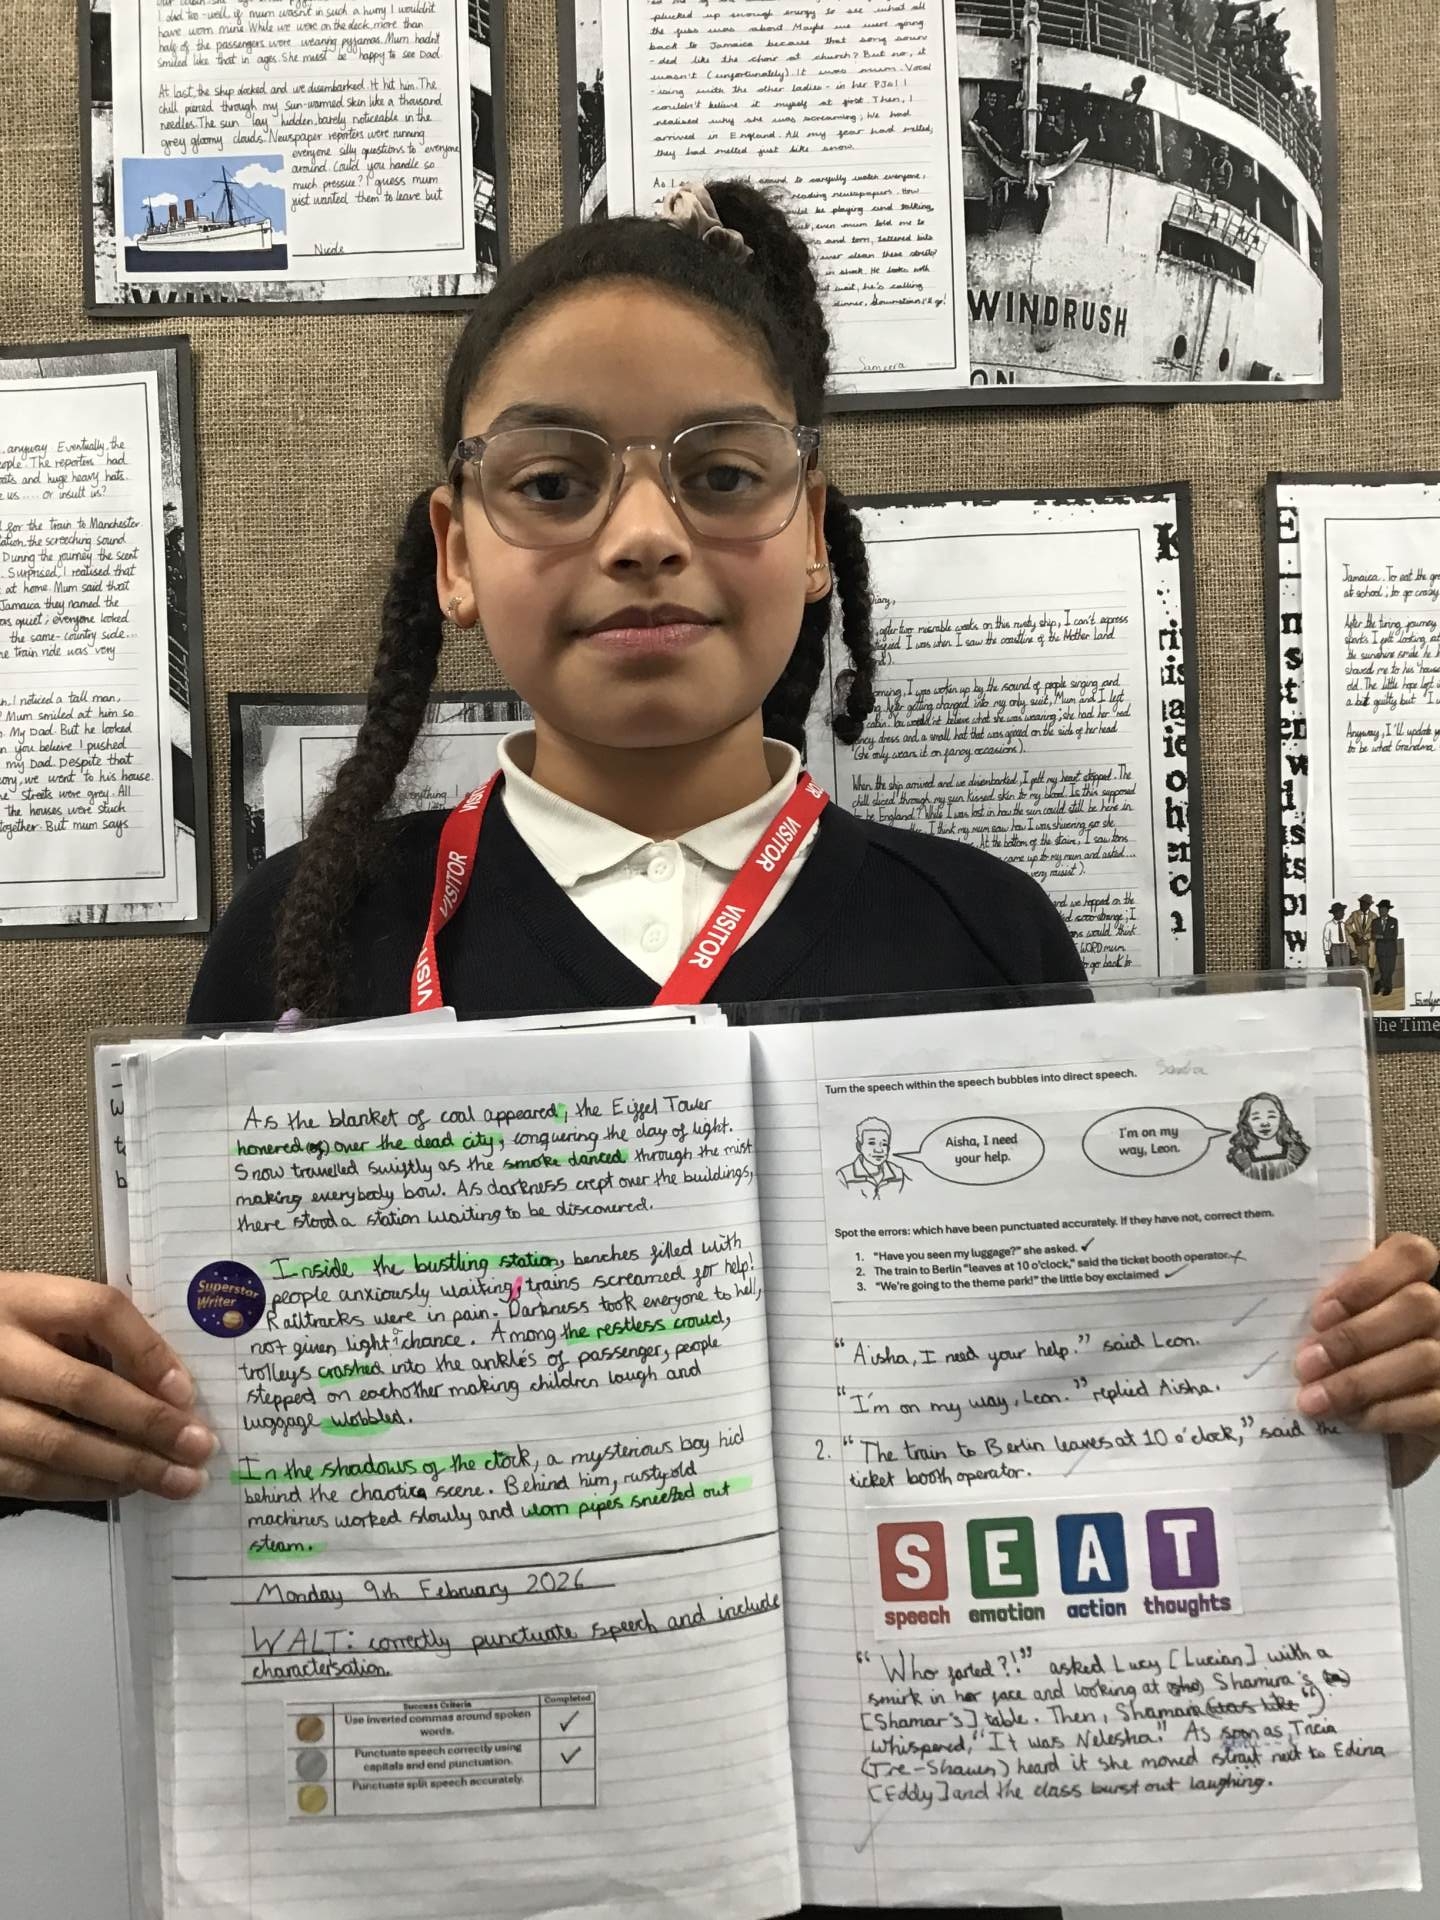 I did too-well, if mum wasn't in such a hurry I wouldn't
have worn mine. While we were on the deck, more than
half of the passengers were wearing pyjamas. Mum hadn't
smiled like that in ages. She must be happy to see Dad.
At last, the ship docked and we disembarked. It hit him. The
chill pierced through my sun-warmed skin like a thousand
needles. The sun lay hidden, barely noticeable in the
grey gloomy clouds. Newspaper reporters were running
everyone silly questions to everyone
around. Could you handle so
much pressure? I guess mum
just wanted them to leave but
Nicole
plucked up enough energy to see what all
the fuss was about. Maybe we were going
back to Jamaica because that song soun
-ded like the choir at church? But no, it
wasn't (unfortunately). It was mum. Vocal
-ising with the other ladies - in her PJs! I
couldn't believe it myself at first. Then, I
realised why she was screaming; We had
arrived in England. All my fear had melted;
they had melted just like snow.
reading newspapers. How
be playing and talking,
even mum told me to
and torn, tattered bits
clean these streets?
in shock. He looks with
wait, he's calling
dinner, downstairs, I'll go!
Sameera
WINDRUSH
ON
anyway. Eventually, the
The reporters had
and huge heavy hats.
us.... or insult us?
for the train to Manchester.
the screeching sound
During the journey the scent
Surprised, I realised that
at home. Mum said that
Jamaica they named the
quiet; everyone looked
the same-country side...
train ride was very
I noticed a tall man,
Mum smiled at him so
My Dad. But he looked
you believe I pushed
my Dad. Despite that
we went to his house.
streets were grey. All
the houses were stuck
together. But mum says
Diary,
after two miserable weeks on this rusty ship, I can't express
I was when I saw the coastline of the Mother Land
I was woken up by the sound of people singing and
After getting changed into my only suit, Mum and I left
You wouldn't believe what she was wearing; she had her red
fancy dress and a small hat that was on the side of her head
(she only wears it on fancy occasions).
When the ship arrived and we disembarked, I felt my heart stopped. The
chill sliced through my sun kissed skin to my blood. Is this supposed
to be England? While I was lost in how the sun could still be here in
I think my mum saw how I was shivering so she
At the bottom of the stairs, I saw tons
came up to my mum and asked...
very racist).
and we hopped on the
strange; I
would think
WORD mum
to go back to
Jamaica. To eat the
at school; to go crazy
After the tiring journey
the sunshine smile he
showed me to his house
old. The little hope left
a bit guilty but I
Anyway, I'll update
to be what Grandma
The Time
VISITOR
VISITOR
VISITOR
VISITOR
VISITOR
As the blanket of coal appeared, the Eiffel Tower
honered (of) over the dead city, conquering the day of light.
Snow travelled swiftly as the smoke danced through the mist
making everybody bow. As darkness crept over the buildings,
there stood a station waiting to be discovered.
Superstar
Writer
Inside the bustling station, benches filled with
people anxiously waiting, trains screamed for help!
Railtracks were in pain. Darkness took everyone to hell,
not given light a chance. Among the restless crowd,
trolleys crashed into the ankles of passenger, people
stepped on eachother making children laugh and
luggage wobbled.
In the shadows of the clock, a mysterious boy hid
behind the chaotic scene. Behind him, rusty old
machines worked slowly and worn pipes sneezed out
steam.
Monday 9th February 2026
WALT: correctly punctuate speech and include
characterisation.
Success Criteria Completed
Use inverted commas around spoken
words.
Punctuate speech correctly using
capitals and end punctuation.
Punctuate split speech accurately.
Turn the speech within the speech bubbles into direct speech.
Aisha, I need
your help.
I'm on my
way, Leon.
Spot the errors: which have been punctuated accurately. If they have not, correct them.
1. "Have you seen my luggage?" she asked.
2. The train to Berlin "leaves at 10 o'clock," said the ticket booth operator.
3. "We're going to the theme park!" the little boy exclaimed
"Aisha, I need your help." said Leon.
"I'm on my way, Leon." replied Aisha.
2. "The train to Berlin leaves at 10 o'clock," said the
ticket booth operator.
S E A T
speech emotion action thoughts
"Who farted?!" asked Lucy [Lucian] with a
smirk in her face and looking at Shamira's
[Shamar's] table. Then, Shamara
whispered, "It was Nelesha." As soon as Tricia
(Tre-Shawn) heard it she moved strait next to Edina
[Eddy] and the class burst out laughing.